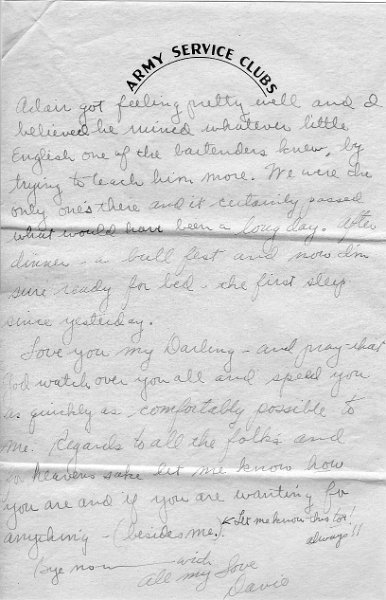 ARMY SERVICE CLUBS
Adair got feeling pretty well and I
believed he ruined whatever little
English one of the bartenders knew, by
trying to teach him more. We were the
only one's there and it certainly passed
what would have been a long day. After
dinner - a bull fest and now I'm
sure ready for bed - the first sleep
since yesterday.
Love you my Darling - and pray that
God watch over you all and speed you
as quickly as comfortably possible to
me. Regards to all the folks and
for heavens sake let me know how
you are and if you are wanting for
anything - (besides me). ← Let me know this too!
always!!
Bye now — with
all my love
Davie